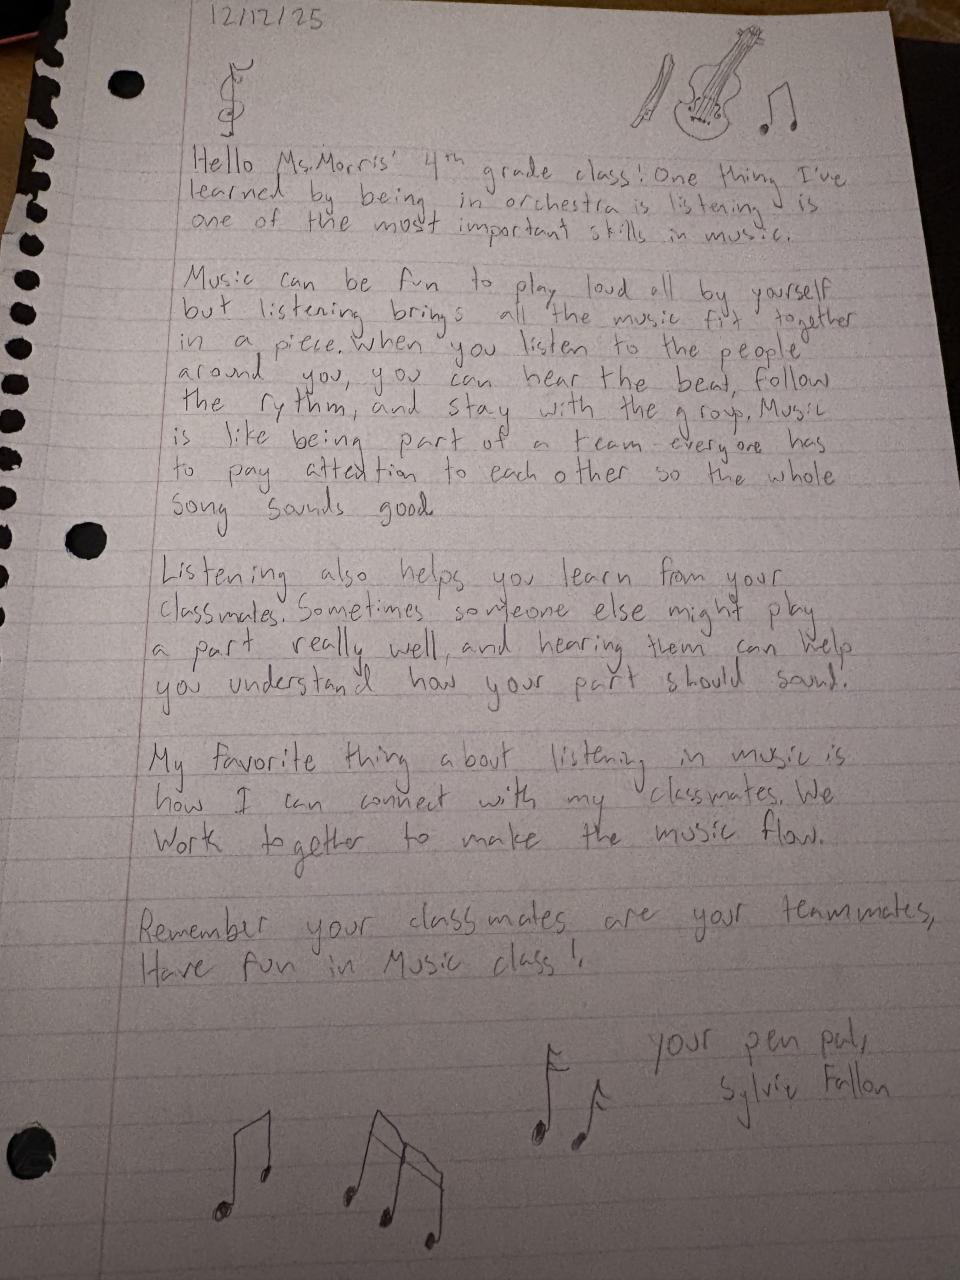 12/12/25
Hello Ms. Morris' 4th grade class! One thing I've
learned by being in orchestra is listening is
one of the most important skills in music.
Music can be fun to play loud all by yourself
but listening brings all the music fit together
in a piece. When you listen to the people
around you, you can hear the beat, follow
the rythm, and stay with the group. Music
is like being part of a team everyone has
to pay attention to each other so the whole
song sounds good
Listening also helps you learn from your
classmates. Sometimes someone else might play
a part really well, and hearing them can help
you understand how your part should sound.
My favorite thing about listening in music is
how I can connect with my classmates. We
work together to make the music flow.
Remember your classmates are your teammates,
Have fun in Music class!
your pen pal,
Sylvie Fallon